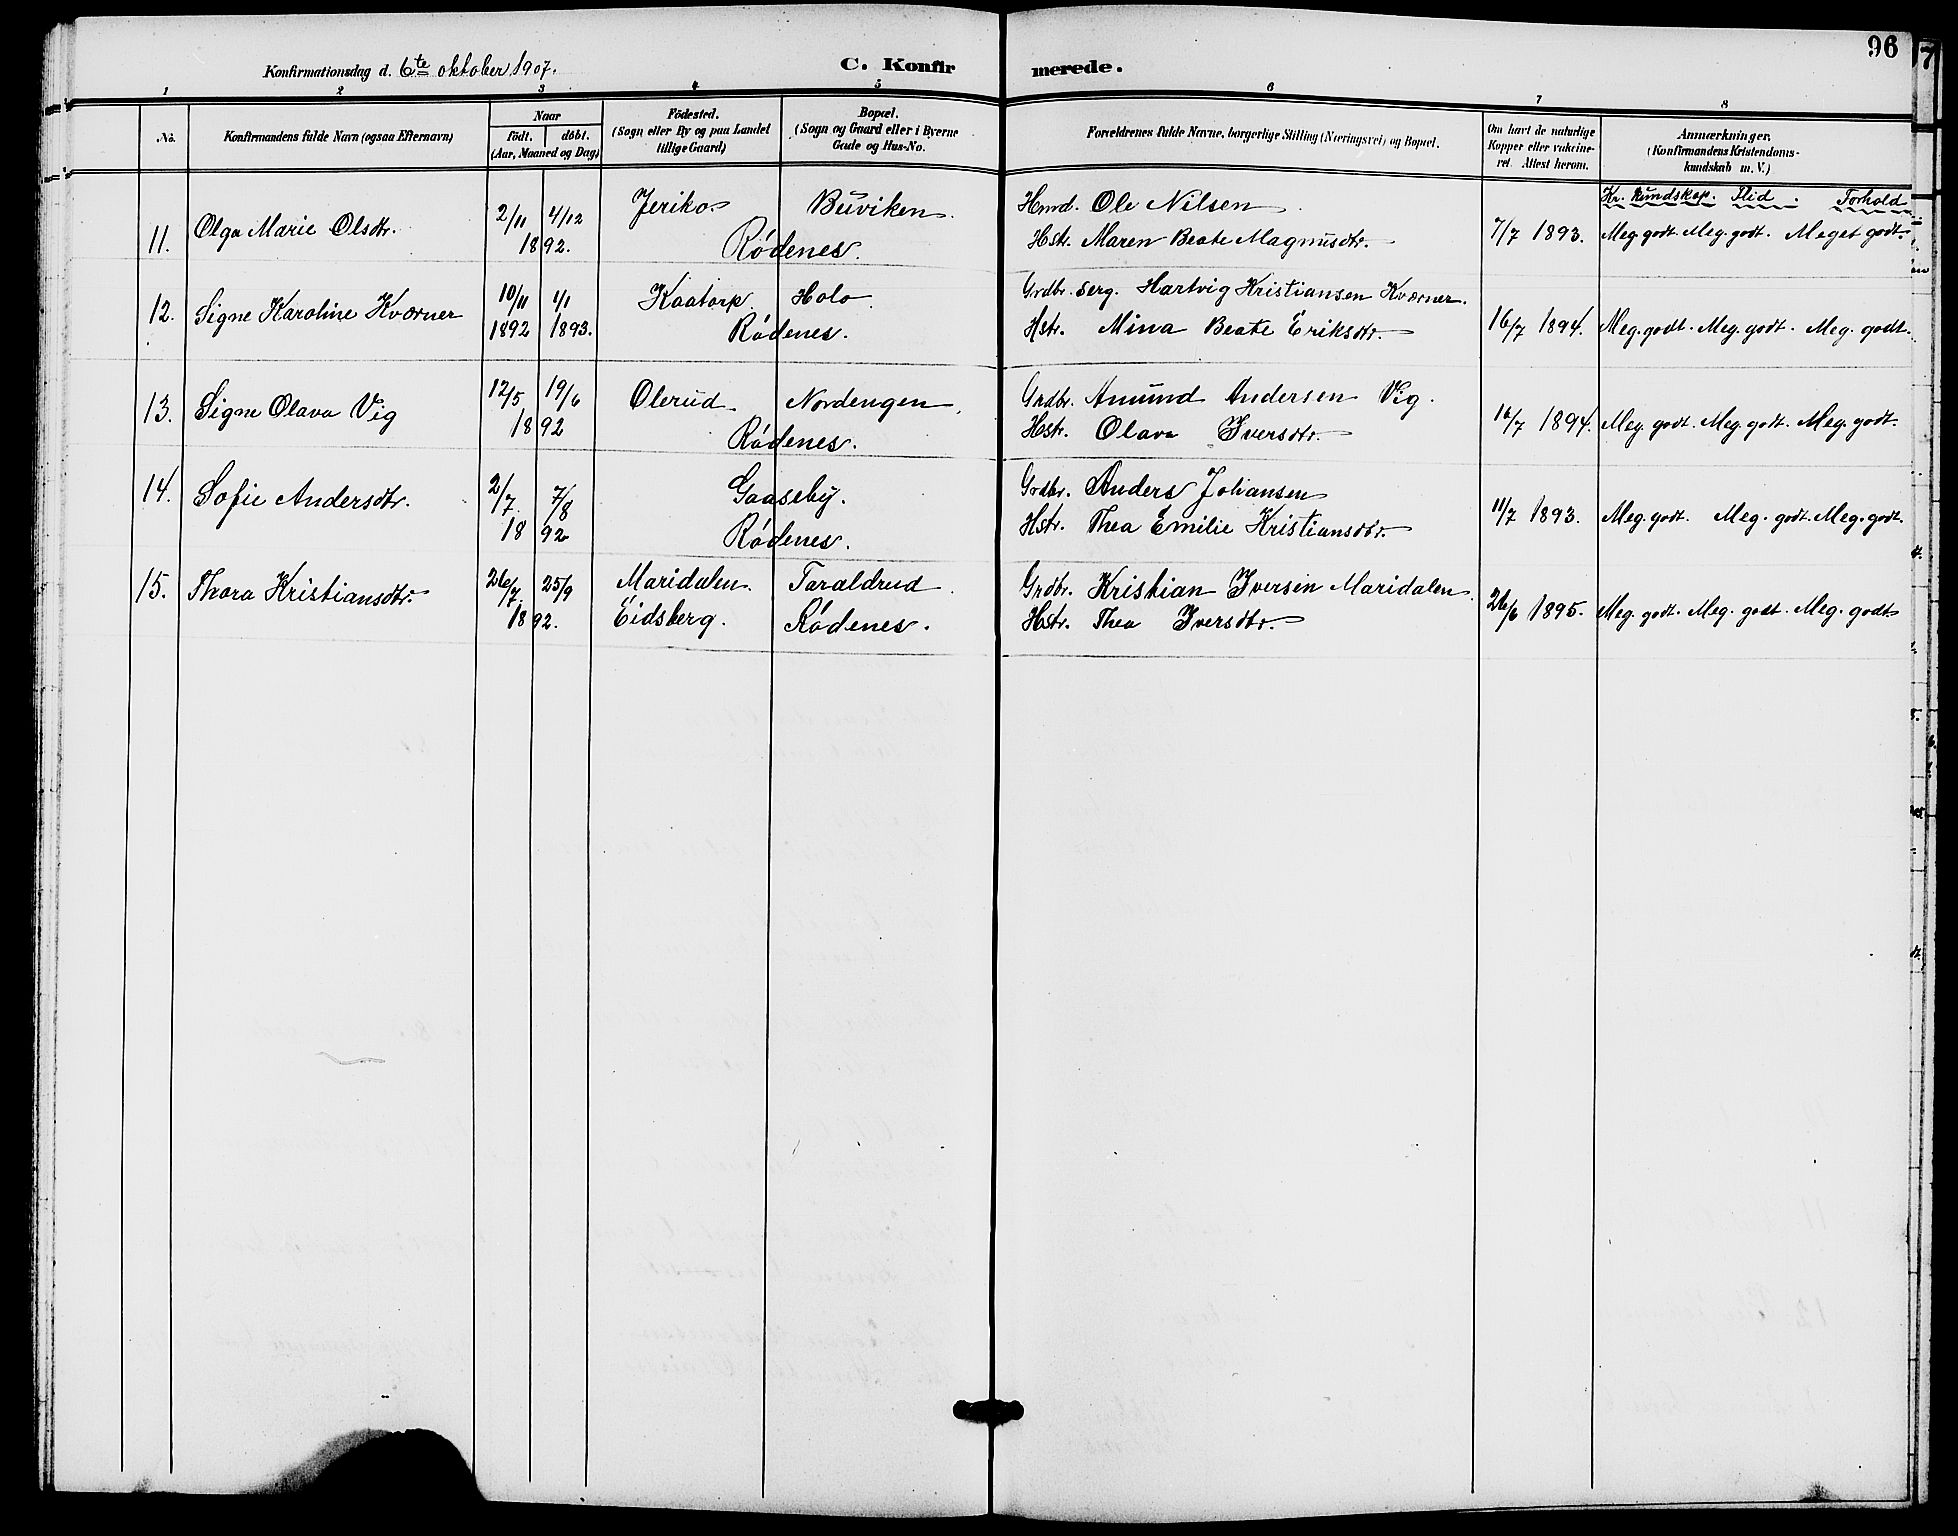 Konfirmationsdag d. 6te oktober 1907.
C. Konfirmerede.
96
1 2 3 4 5 6 7 8
No.
Konfirmandens fulde Navn (ogsaa Efternavn)
Naar
födt. döbt.
(Aar, Maaned og Dag)
Födested.
(Sogn eller By og paa Landet
tillige Gaard)
Bopæl.
(Sogn og Gaard eller i Byerne
Gade og Hus-No.
Forældrenes fulde Navne, borgerlige Stilling (Næringsvei) og Bopæl.
Om havt de naturlige
Kopper eller vaccine-
ret. Attest herom.
Anmærkninger.
(Konfirmandens Kristendoms-
kundskab m. V.)
Kr. kundskap. Flid. Forhold
11. Olga Marie Olsdtr. 2/11 4/12 Jeriko. Buviken. Hmd. Ole Nilsen
1892. Rødenes. Hstr. Maren Beate Magnusdtr. 7/7 1893. Meg. godt. Meg. godt. Meget godt.
12. Signe Karoline Kværner 10/11 1/1 Kaatorp Holo Grdbr. serg. Hartvig Kristiansen Kværner.
1892 1893. Rødenes. Hstr. Mina Beate Eriksdtr. 16/7 1894. Meg. godt. Meg. godt. Meg. godt.
13. Signe Olava Vig 12/5 19/6 Olerud. Nordengen. Grdbr. Amund Andersen Vig.
1892 Rødenes. Hstr. Olava Iversdtr. 16/7 1894. Meg. godt. Meg. godt. Meg. godt.
14. Sofie Andersdtr. 2/7 7/8 Gaaseby. Grdbr. Anders Johansen
1892 Rødenes. Hstr. Thea Emilie Kristiansdtr. 11/7 1893. Meg. godt. Meg. godt. Meg. godt.
15. Thora Kristiansdtr. 26/7. 25/9 Maridalen. Taraldrud. Grdbr. Kristian Iversen Maridalen.
1892. Eidsberg. Rødenes. Hstr. Thea Iversdtr. 26/6 1895. Meg. godt. Meg. godt. Meg. godt